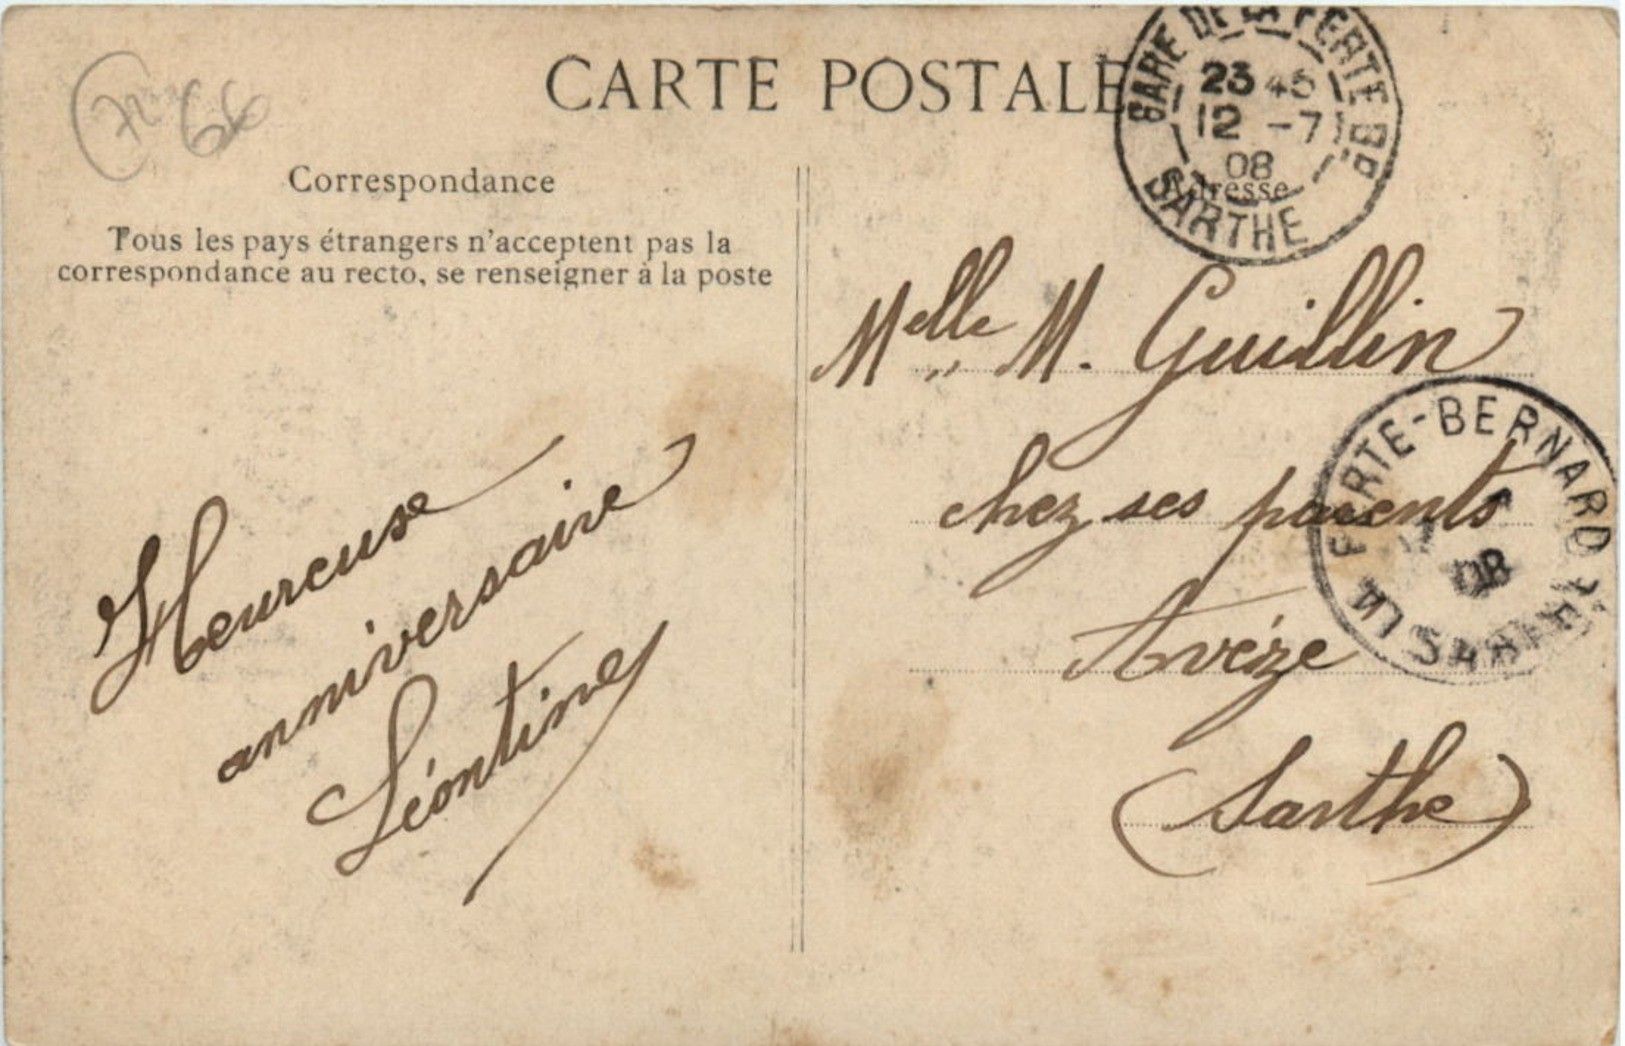 CARTE POSTALE
GARE DE LA FERTE BD
23 45
12 -7
08
SARTHE
66
Correspondance
Adresse
Tous les pays étrangers n'acceptent pas la
correspondance au recto, se renseigner à la poste
Heureuse
anniversaire
Léontine
Melle M. Guillin
chez ses parents
Avéze
(Sarthe)
LA FERTE-BERNARD
08
SARTHE